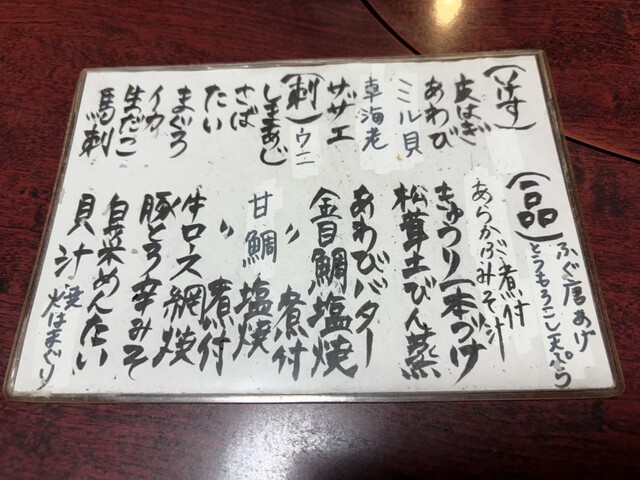 (いけす)
皮はぎ
あわび
ミル貝
車海老
サザエ
(刺)
ウニ
しまあじ
さば
たい
まぐろ
イカ
生だこ
馬刺
(一品)
ふぐ唐あげ
とうもろこし天ぷら
あらかぶ煮付
みそ汁
きゅうり一本づけ
松茸土びん蒸
あわびバター
金目鯛塩焼
〃 煮付
甘鯛塩焼
〃 煮付
牛ロース網焼
豚とろ辛みそ
白菜めんたい
貝汁
焼はまぐり